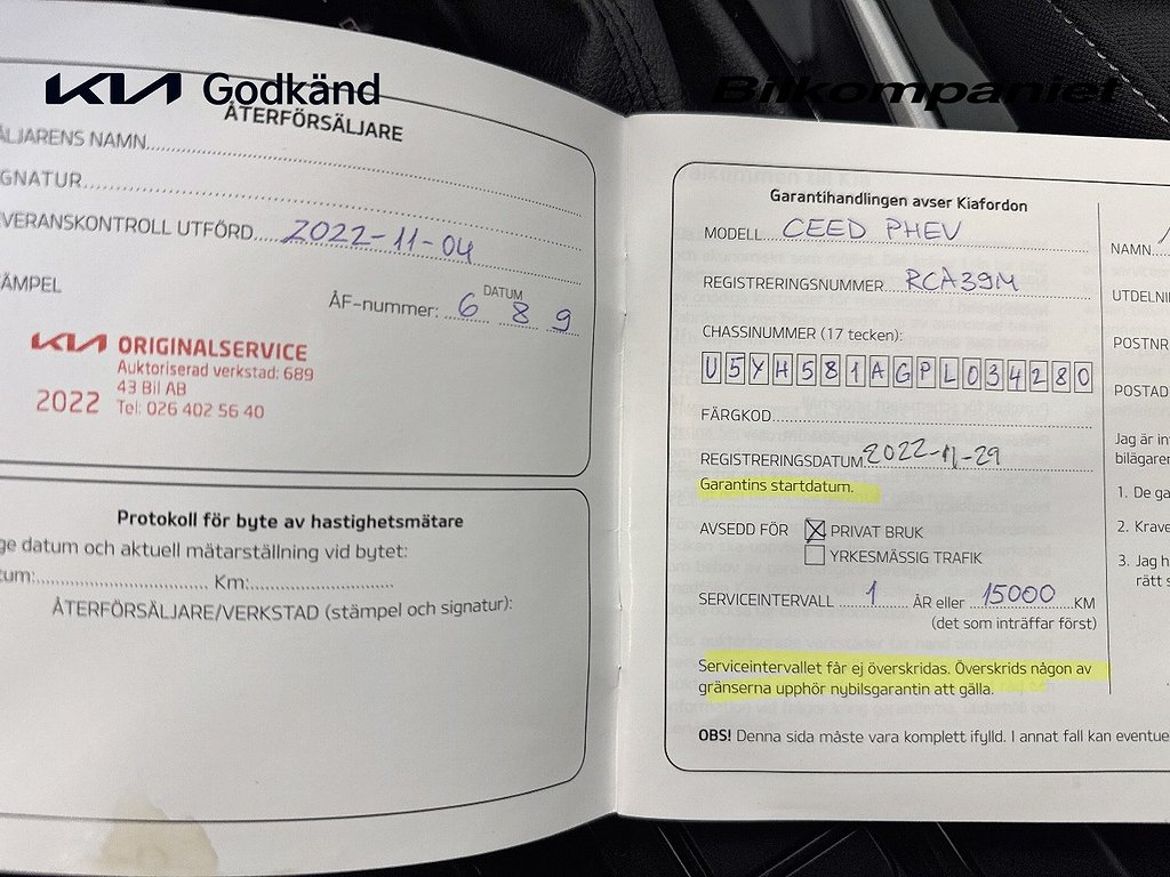 KIA Godkänd
ÅTERFÖRSÄLJARE
ÄLJARENS NAMN
GNATUR
VERANSKONTROLL UTFÖRD 2022-11-04
DATUM
ÄMPEL
ÅF-nummer: 6 8 9
KIA ORIGINALSERVICE
Auktoriserad verkstad: 689
43 Bil AB
2022 Tel: 026 402 56 40
Protokoll för byte av hastighetsmätare
ge datum och aktuell mätarställning vid bytet:
tum: Km:
ÅTERFÖRSÄLJARE/VERKSTAD (stämpel och signatur):
Bilkompaniet
Garantihandlingen avser Kiafordon
MODELL CEED PHEV
REGISTRERINGSNUMMER RCA39M
CHASSINUMMER (17 tecken):
U5YH581AGPL034280
FÄRGKOD
REGISTRERINGSDATUM 2022-11-29
Garantins startdatum.
AVSEDD FÖR PRIVAT BRUK
YRKESMÄSSIG TRAFIK
SERVICEINTERVALL 1 ÅR eller 15000 KM
(det som inträffar först)
Serviceintervallet får ej överskridas. Överskrids någon av
gränserna upphör nybilsgarantin att gälla.
OBS! Denna sida måste vara komplett ifylld. I annat fall kan eventue
NAMN
UTDELNI
POSTNR
POSTAD
Jag är in
bilägaren
1. De ga
2. Krave
3. Jag h
rätt s